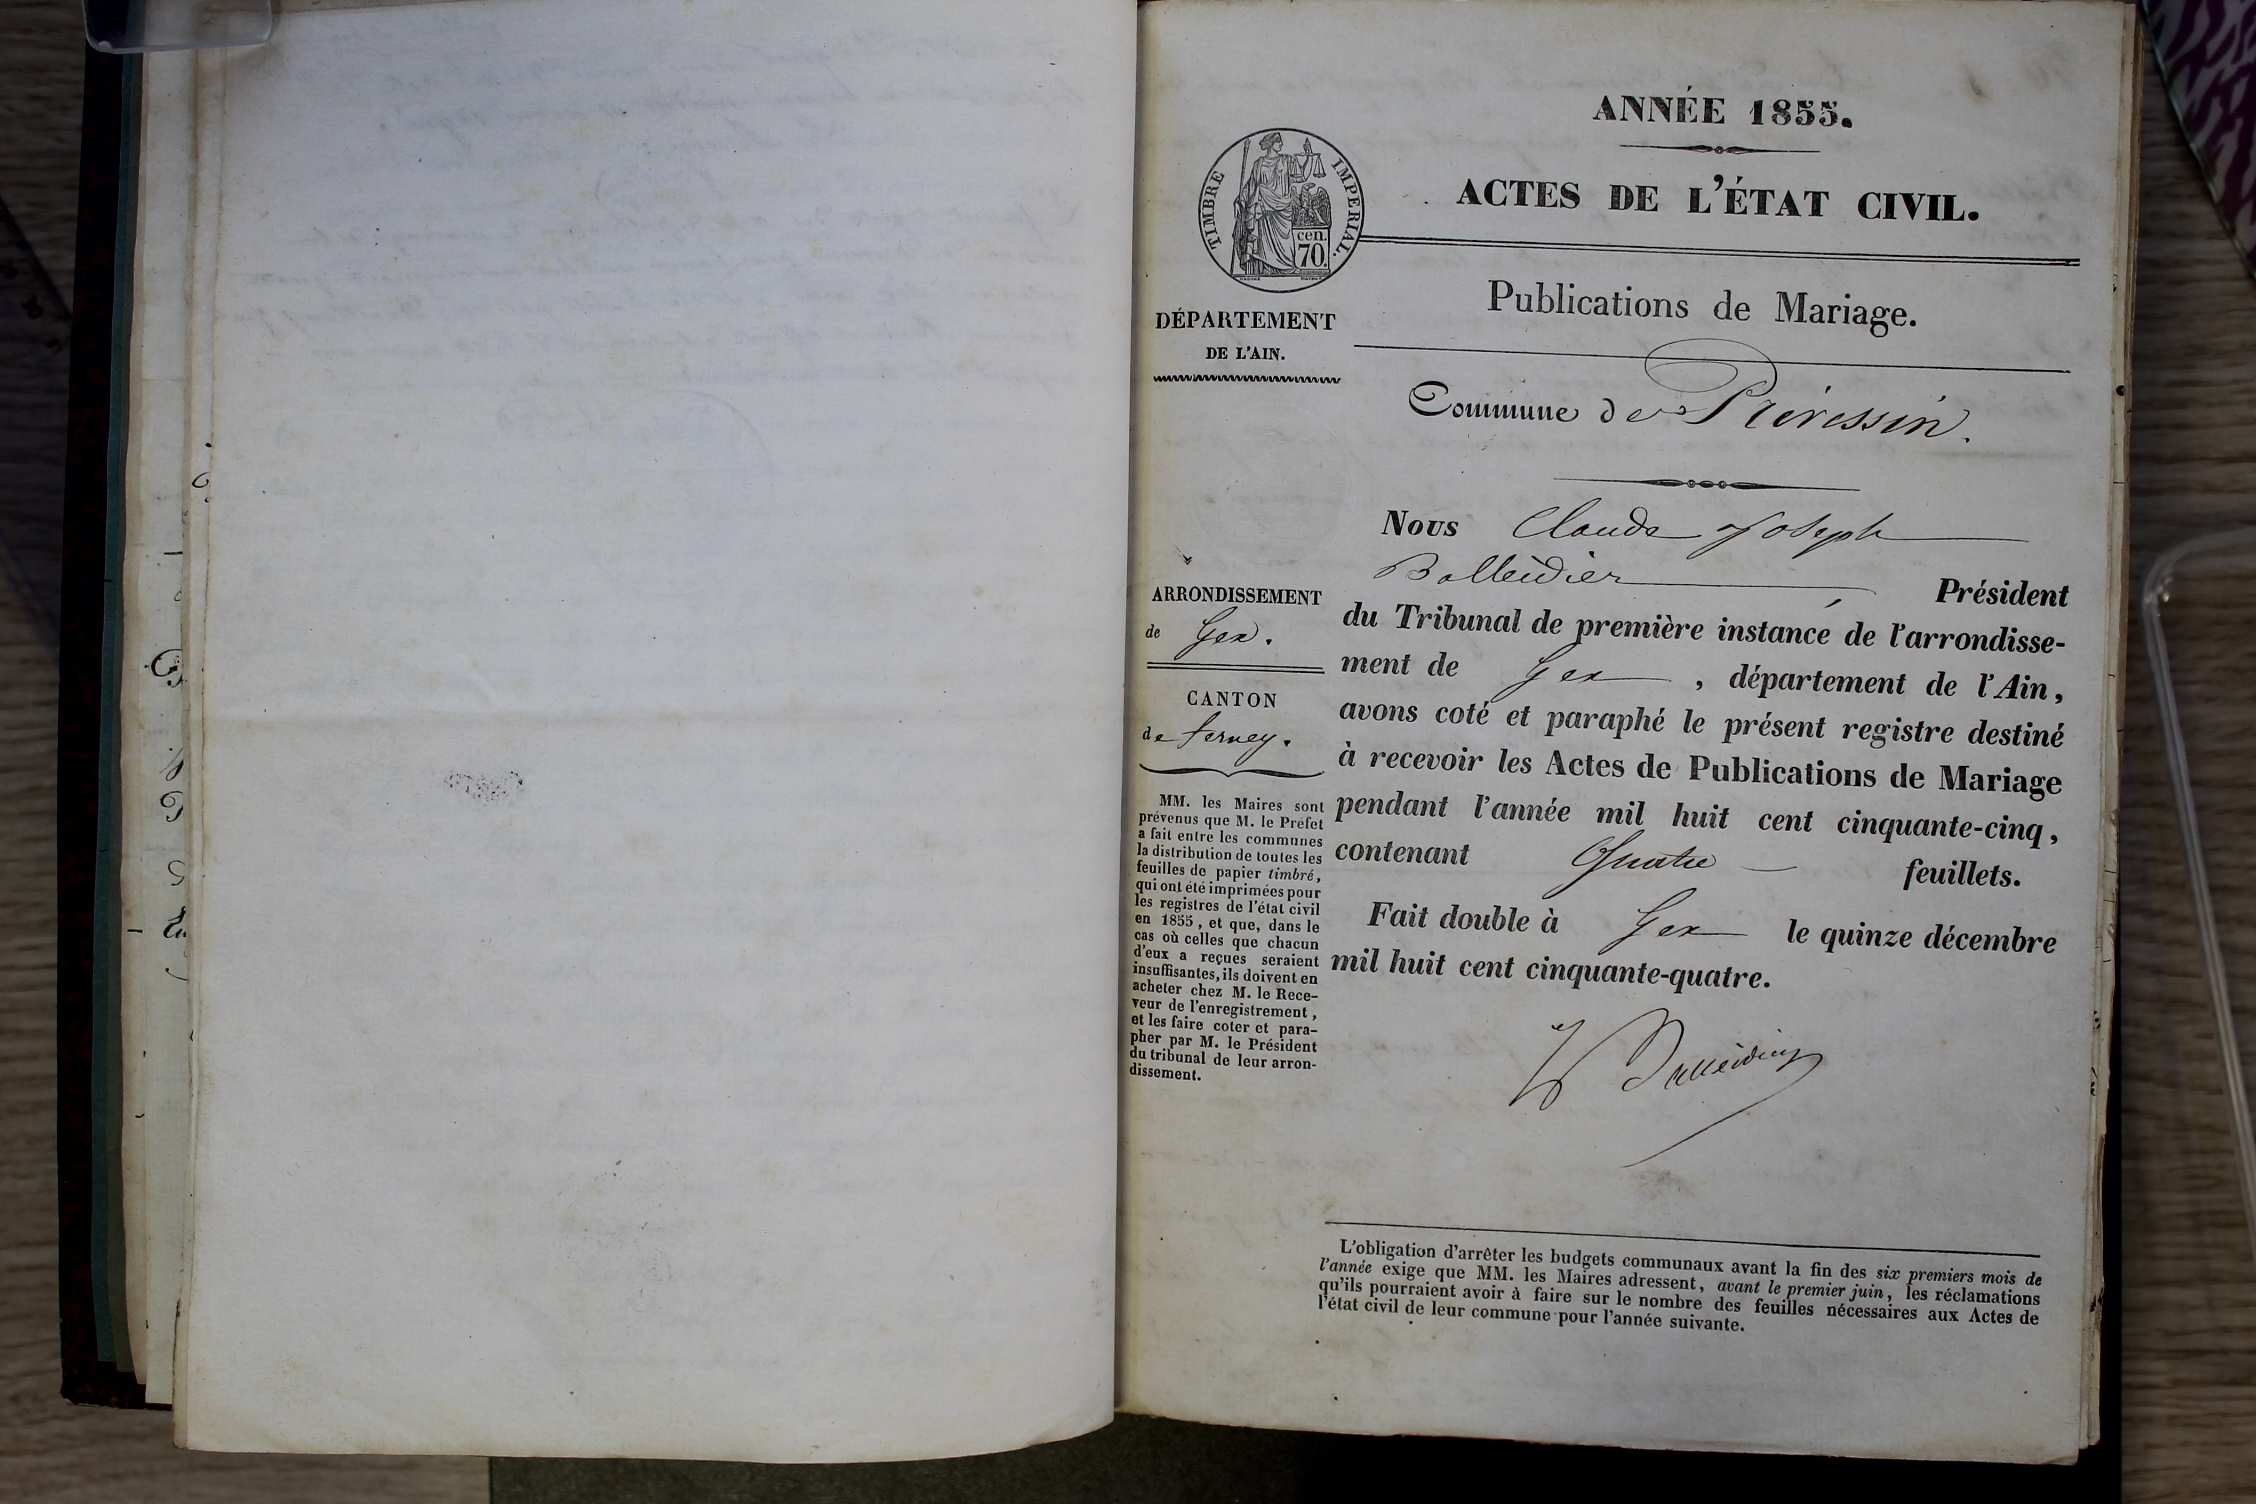 ANNÉE 1855.
ACTES DE L'ÉTAT CIVIL.
TIMBRE IMPERIAL.
cen.
70.
Publications de Mariage.
DÉPARTEMENT
DE L'AIN.
Commune de Prévessin.
Nous Claude Joseph
Balleidier Président
du Tribunal de première instance de l'arrondisse-
ment de Gex, département de l'Ain,
avons coté et paraphé le présent registre destiné
à recevoir les Actes de Publications de Mariage
pendant l'année mil huit cent cinquante-cinq,
contenant Quatre feuillets.
Fait double à Gex le quinze décembre
mil huit cent cinquante-quatre.
Balleidier
ARRONDISSEMENT
de Gex.
CANTON
de ferney.
MM. les Maires sont
prévenus que M. le Préfet
a fait entre les communes
la distribution de toutes les
feuilles de papier timbré,
qui ont été imprimées pour
les registres de l'état civil
en 1855, et que, dans le
cas où celles que chacun
d'eux a reçues seraient
insuffisantes, ils doivent en
acheter chez M. le Rece-
veur de l'enregistrement,
et les faire coter et para-
pher par M. le Président
du tribunal de leur arron-
dissement.
L'obligation d'arrêter les budgets communaux avant la fin des six premiers mois de
l'année exige que MM. les Maires adressent, avant le premier juin, les réclamations
qu'ils pourraient avoir à faire sur le nombre des feuilles nécessaires aux Actes de
l'état civil de leur commune pour l'année suivante.